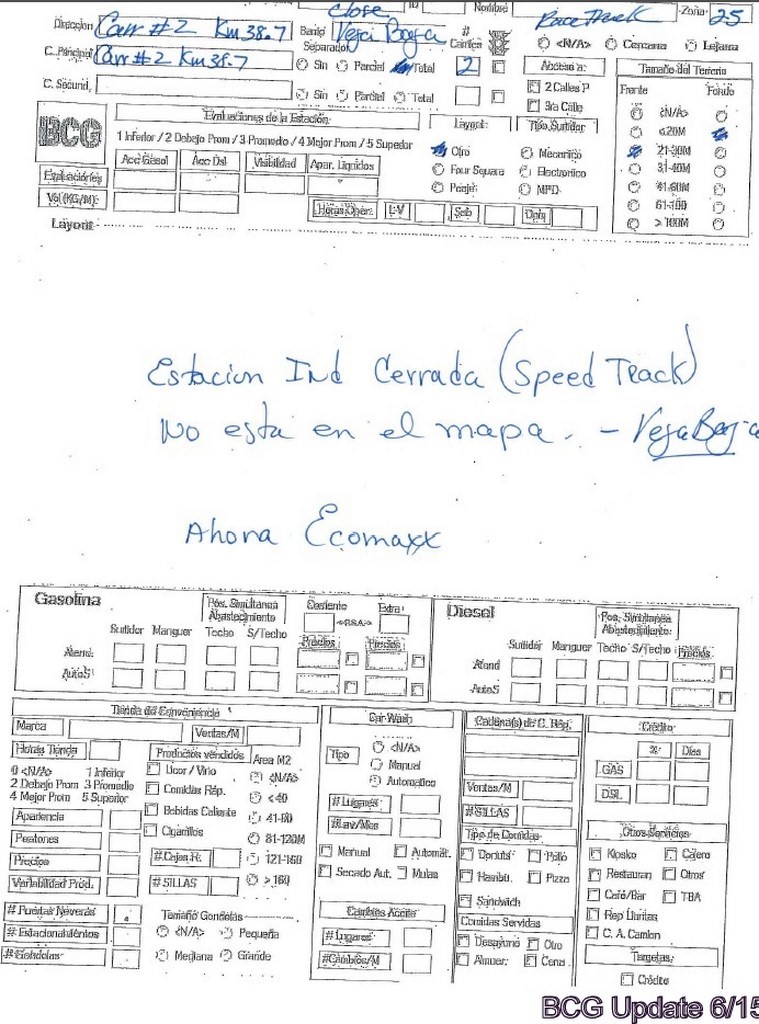 close Nombre RaceTrack Zona 25
Direccion Carr #2 Km 38.7 Barrio Vega Baja #
C. Principal Carr #2 Km 38.7 Separador Carriles <N/A> Cercana Lejana
Sin Parcial Total 2 Acceso a: Tamaño del Terreno
C. Secund. Sin Parcial Total 2 Calles P Frente Fondo
3ra Calle <N/A>
BCG Evaluaciones de la Estación Layout Tipo Surtidor <20M
1 Inferior / 2 Debajo Prom / 3 Promedio / 4 Mejor Prom / 5 Superior Otro Mecanico 21-30M
Acc Gasol Acc Dsl Visibilidad Apar. Liquidos Four Square Electronico 31-40M
Evaluaciones Peaje MPD 41-60M
Vol (KG/M) Horas Oper. L-V Sab Dom 61-100
Layout > 100M
Estacion Ind Cerrada (Speed Track)
No esta en el mapa. - Vega Baja
Ahora Ecomaxx
Gasolina Pos. Simultanea Abastecimiento Corriente <-RSA-> Extra Diesel Pos. Simultanea Abastecimiento
Surtidor Manguer Techo S/Techo Precios Precios Surtidor Manguer Techo S/Techo Precios
Atend. Atend
AutoS AutoS
Tienda de Conveniencia Car Wash Cadena(s) de C. Ráp. Crédito
Marca Ventas/M <N/A> % Dias
Horas Tienda Productos vendidos Area M2 Tipo Manual GAS
0 <N/A> 1 Inferior Licor / Vino <N/A> Automatico Ventas/M DSL
2 Debajo Prom 3 Promedio Comidas Ráp. < 40 # Lugares # SILLAS
4 Mejor Prom 5 Superior Bebidas Caliente 41-80 # Lav/Mes Tipo de Comidas Otros Servicios
Apariencia Cigarrillos 81-120M Manual Automát. Donuts Pollo Kiosko Cajero
Peatones # Cajas R. 121-160 Secado Aut. Mulas Hambu. Pizza Restauran Otros
Precios # SILLAS > 160 Sandwich Café/Bar TBA
Variabilidad Prod. Cambios Aceite Comidas Servidas Rep Llantas
# Puertas Neveras Tamaño Gondolas # Lugares Desayuno Otro C. A. Camion
# Estacionamientos <N/A> Pequeña # Cambios/M Almuer. Cena Tarjetas
# Gondolas Mediana Grande Crédito
BCG Update 6/15